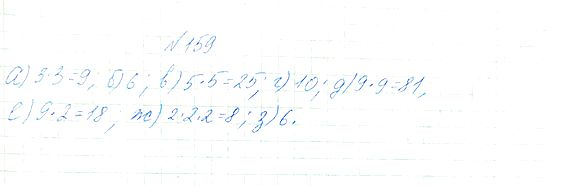 №159
а) 3·3=9; б) 6; в) 5·5=25; г) 10; д) 9·9=81,
е) 9·2=18; ж) 2·2·2=8; з) 6.